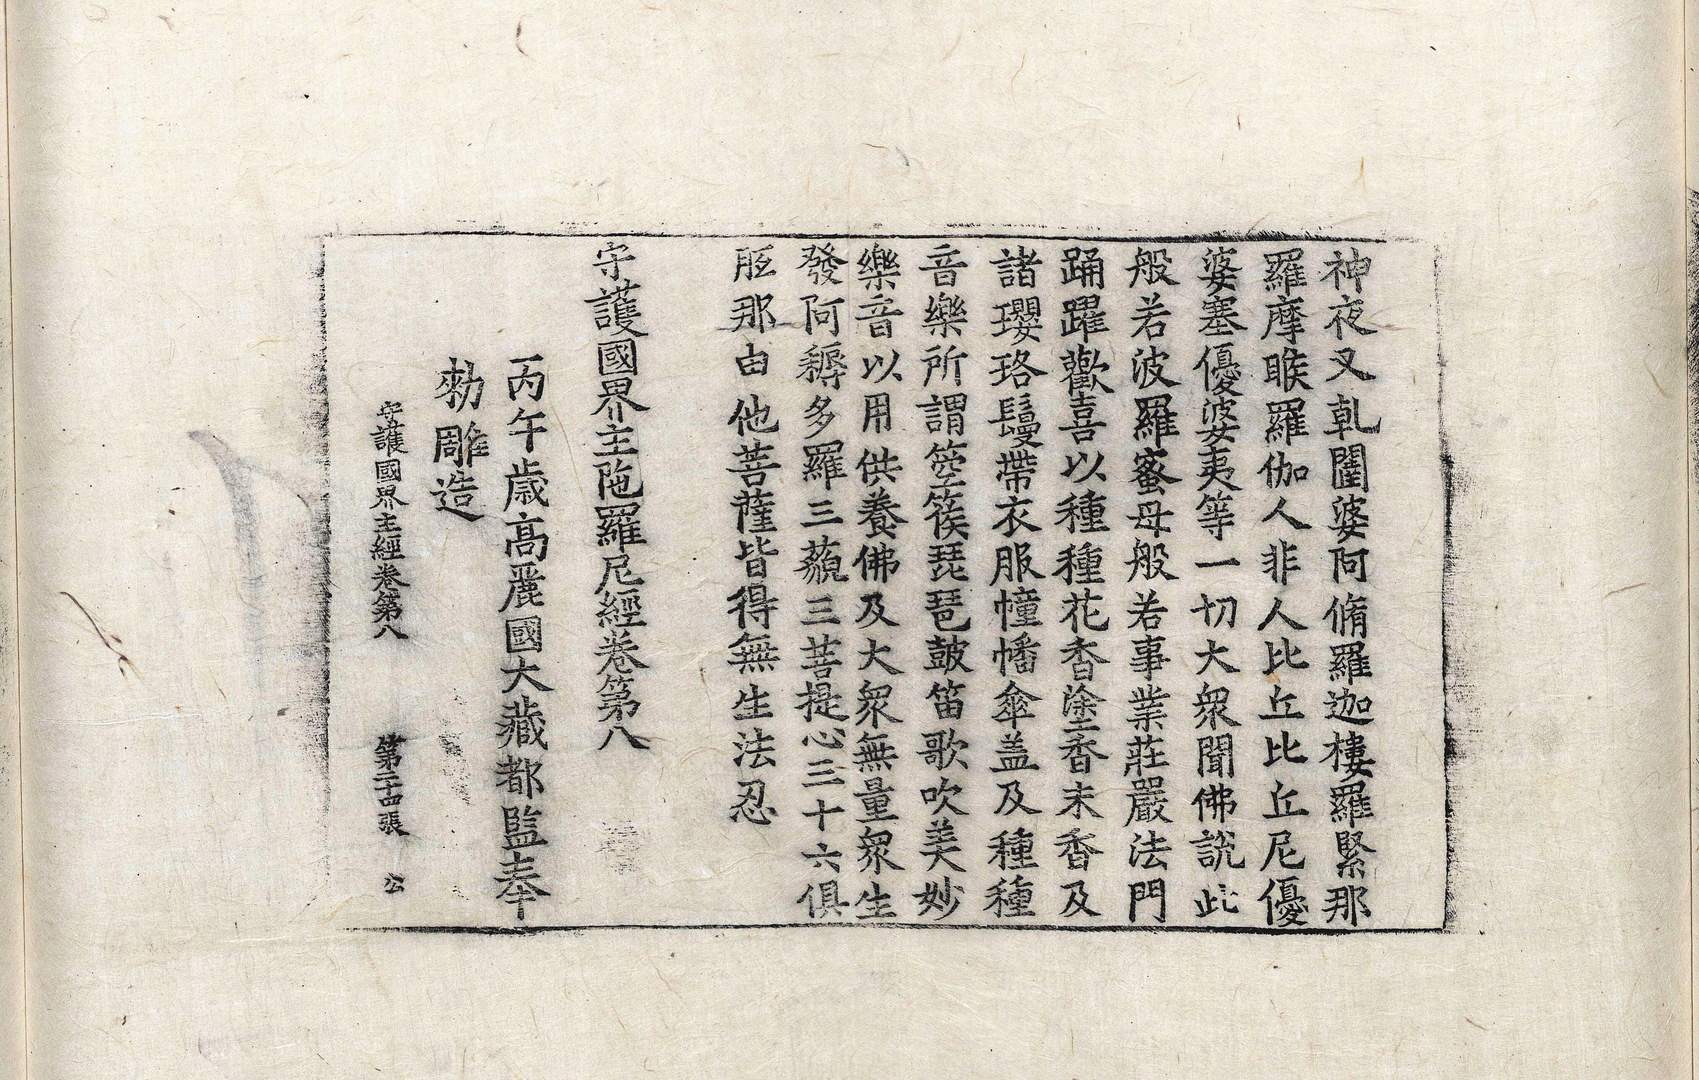 神夜叉乹闥婆阿脩羅迦樓羅緊那
羅摩睺羅伽人非人比丘比丘尼優
婆塞優婆夷等一切大衆聞佛說此
般若波羅蜜母般若事業莊嚴法門
踊躍歡喜以種種花香塗香末香及
諸瓔珞鬘帶衣服幢幡傘盖及種種
音樂所謂箜篌琵琶鼓笛歌吹美妙
樂音以用供養佛及大衆無量衆生
發阿耨多羅三藐三菩提心三十六俱
胝那由他菩薩皆得無生法忍
守護國界主陁羅尼經卷第八
丙午歳高麗國大藏都監奉
勑雕造
守護國界主經卷第八 第二十四張 公